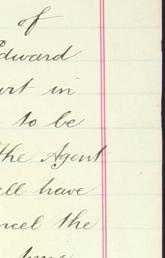 of
dward
urt in
to be
the Agent
all have
ncel the
time